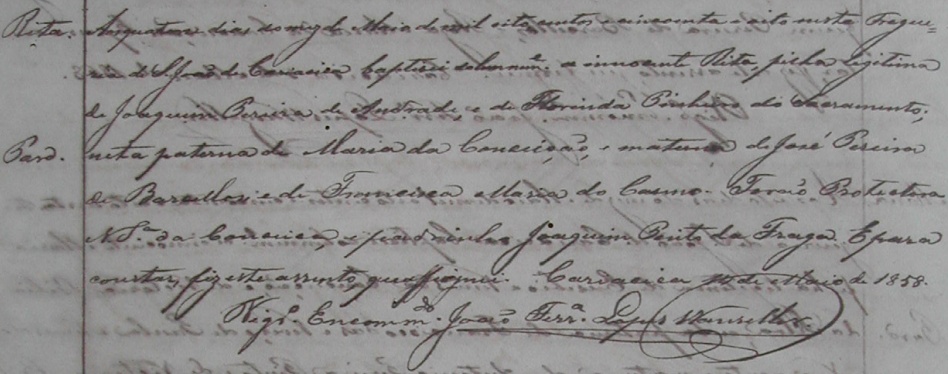 Rita. Aos quatorze dias do mez de Maio de mil oito centos e cincoenta e oito nesta Fregue=
zia de S. João de Cariacica baptizei solemnem.e a innocente Rita, filha legitima
de Joaquim Pereira de Andrade e de Florinda Pinheiro do Sacramento;
Pard. neta paterna de Maria da Conceição, e materna de José Pereira
de Barcellos e de Francisca Maria do Carmo. Forão Protectora
N. S.ra da Conceicão, e padrinho Joaquim Pinto da Fraga. E para
constar, fiz este assento, que assignei. Cariacica 14 de Maio de 1858.
Vigr.o Encomm.do João Ferr.a Lopes